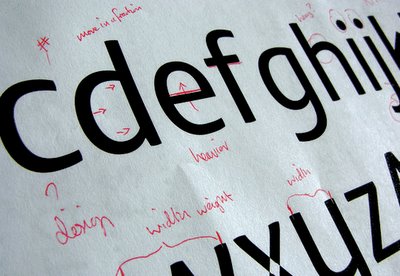 # move in a fraction
cdefghijk
heavier
?
design
width weight
width
wxyz